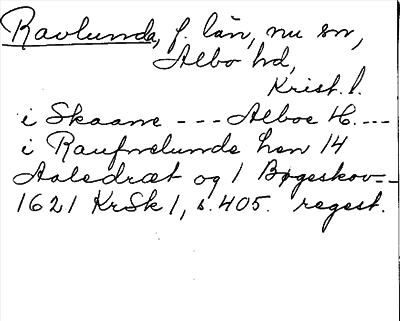 Ravlunda, f. län, nu sn,
Albo hd,
Krist. l.
i Skaane --- Alboe H. ---
i Raufnelunde hen 14
Aaledræt og 1 Bøgeskov --
1621 KrSk 1, s. 405. regest.